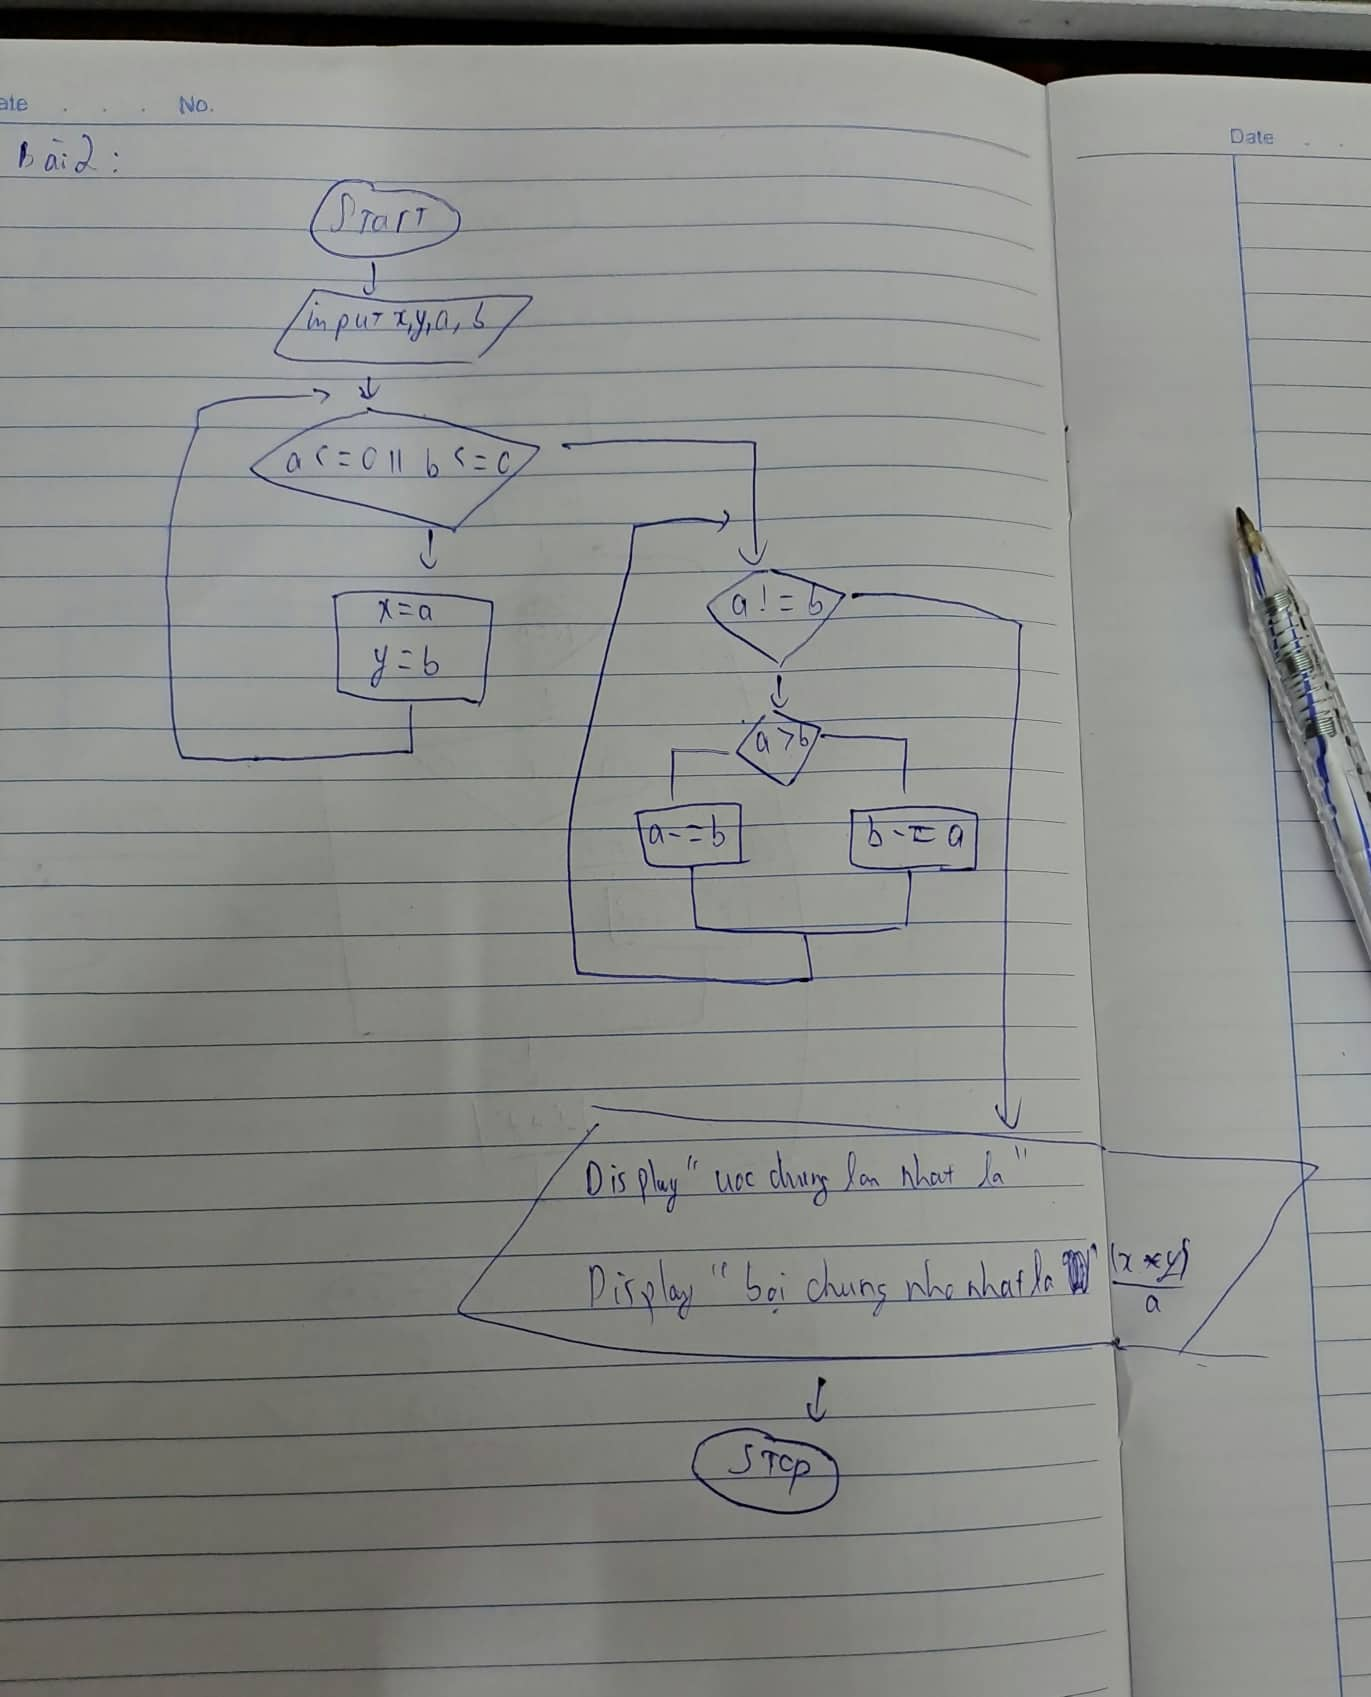 Date . . . No.
Date . .
Bài 2:
START
input x,y,a, b
a <= 0 || b <= 0
x=a
y=b
a != b
a >b
a-=b
b -= a
Display "uoc chung lon nhat la"
Display "bội chung nho nhat la" (x * y)
a
STOP